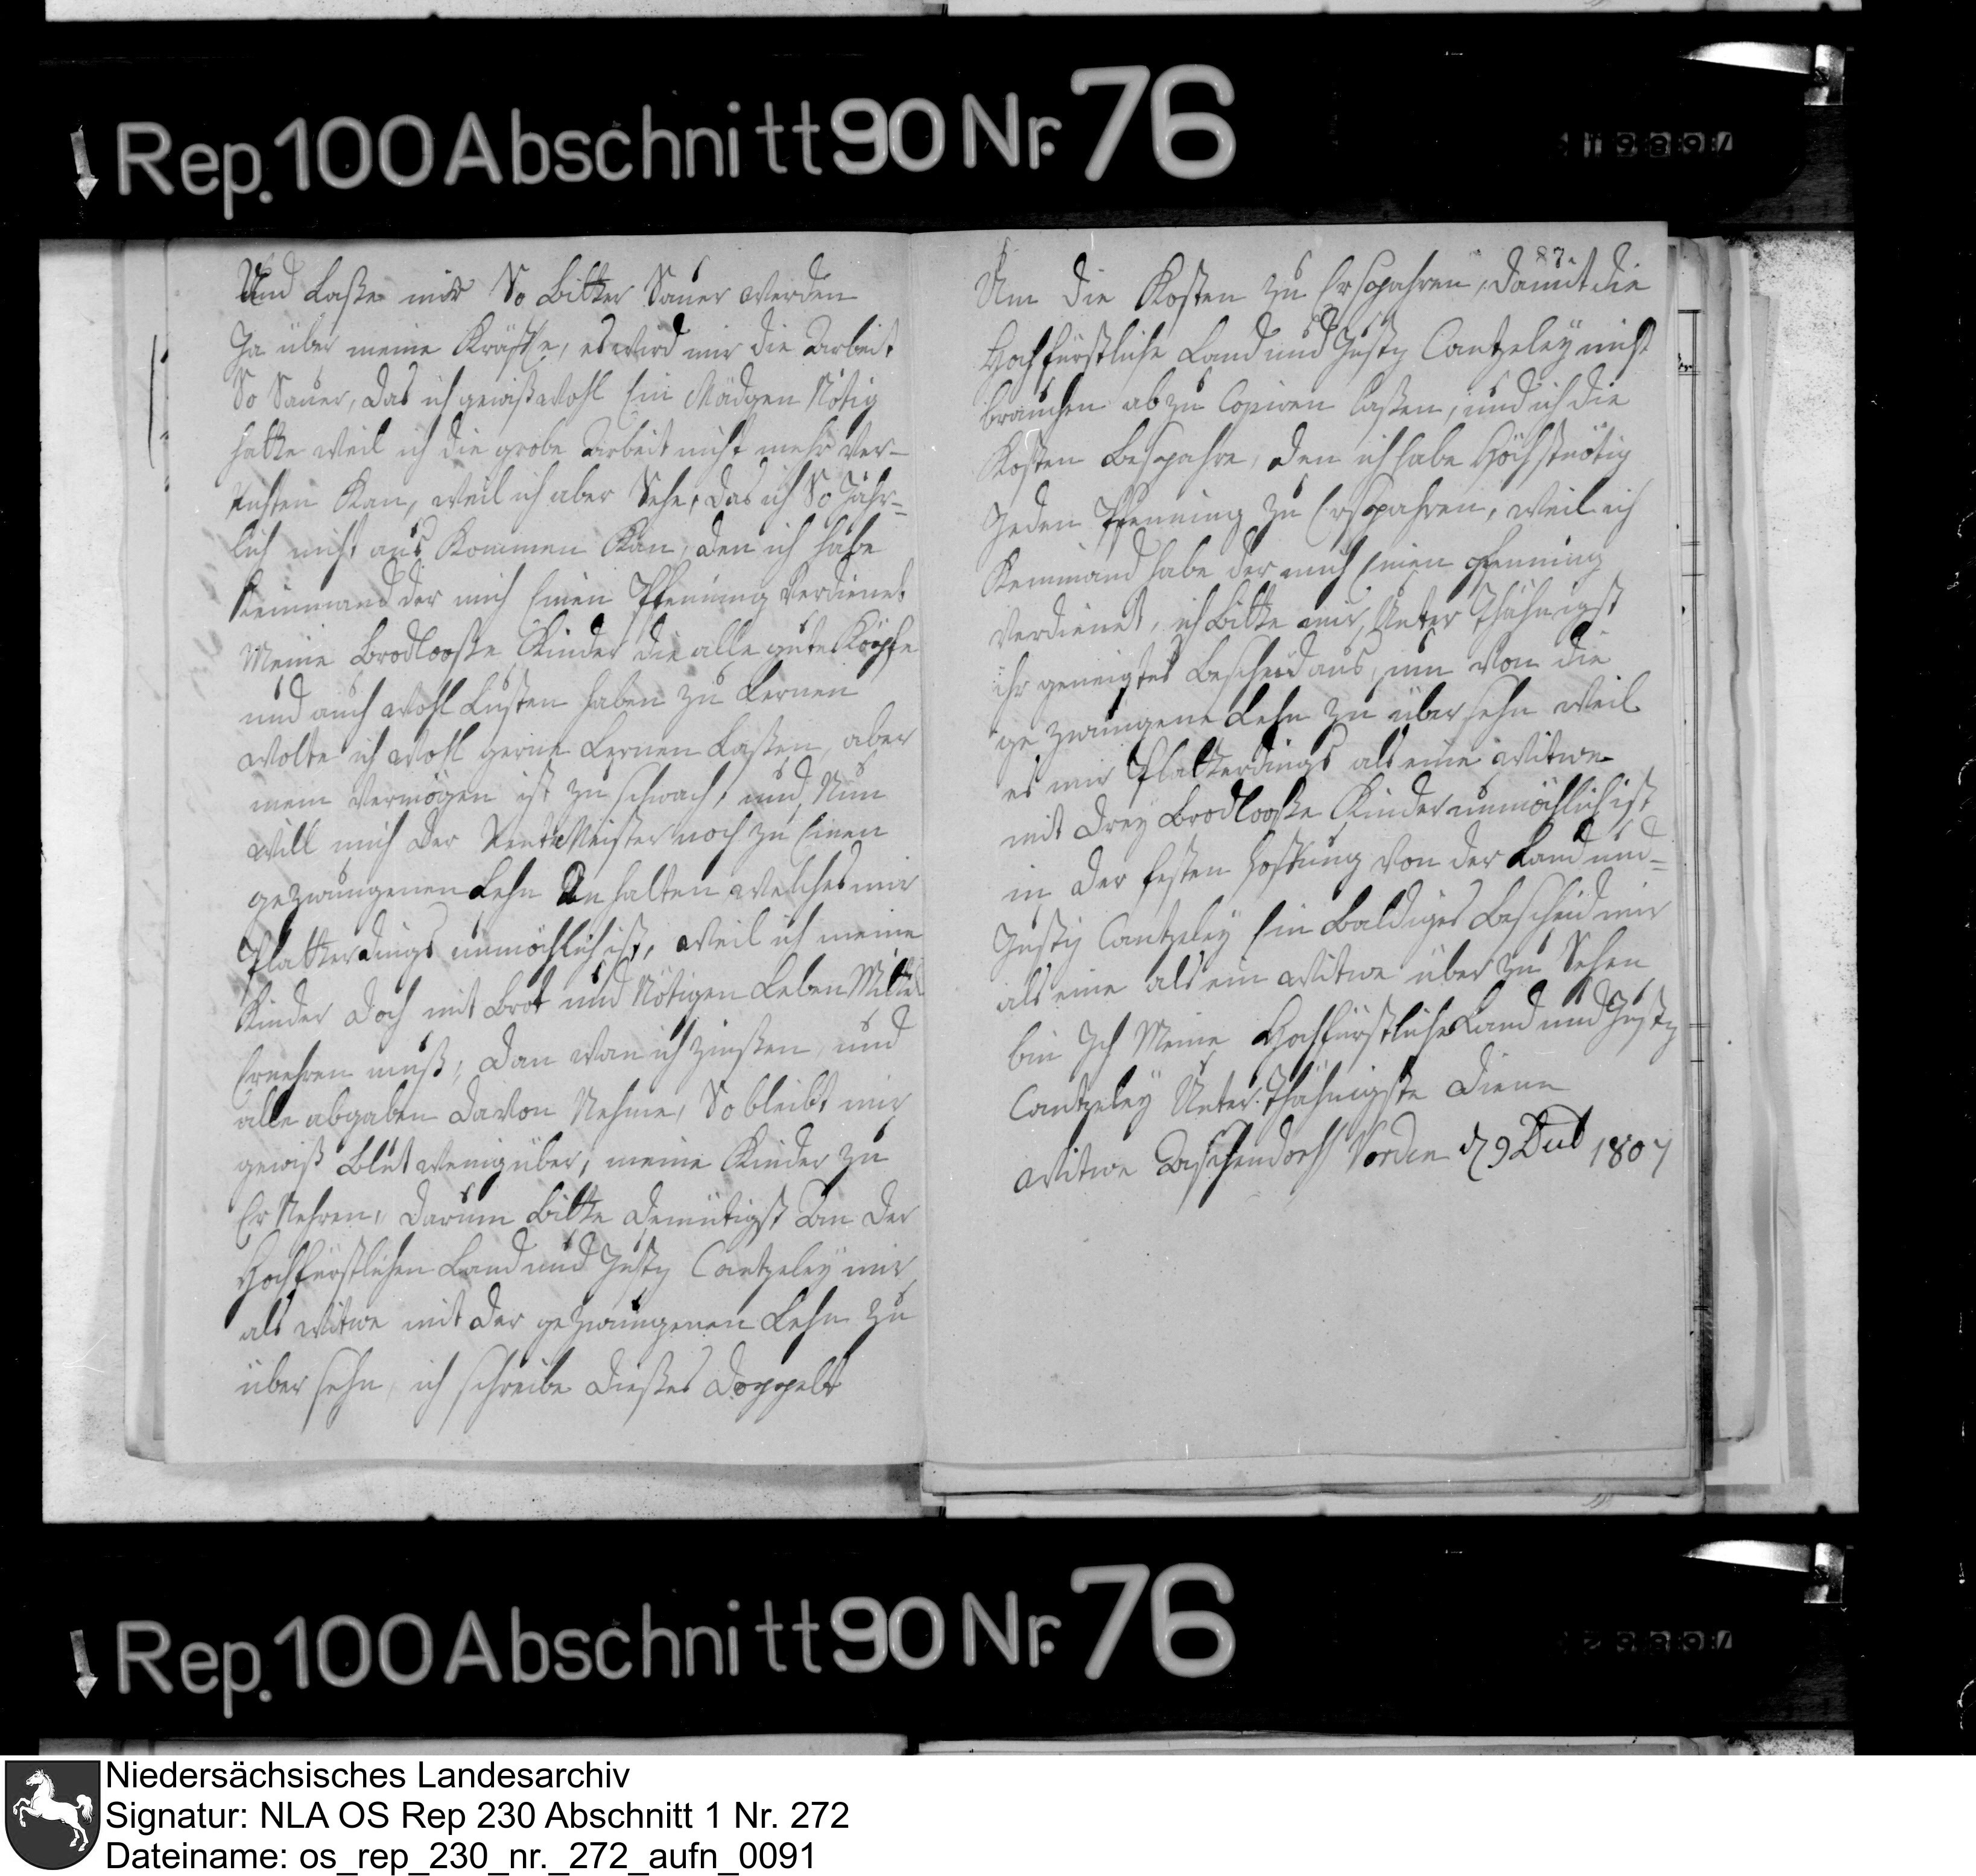 Rep. 100 Abschnitt 90 Nr. 76
Und Laße mir So Bitter Sauer werden
Ja über meine Kräffte, es wird mir die Arbeit
So Sauer, das ich gewiß wohl Ein Mädgen Nötig
hatte weil ich die grobe Arbeit nicht mehr Ver-
richten Kan, weil ich aber Sehe, das ich So Jähr=
lich nicht aus Kommen Kan, den ich habe
Keinmand der mich Einen Pfenning Verdienet
Meine Brodlooße Kinder die alle gute Köpfe
und auch wohl Lusten haben zu Lernen
wolte ich wohl gerne Lernen Laßen, aber
mein Vermögen ist zu schwach, und Nun
will mich der RentMeister noch zu Einen
gezwungenen Lehn An halten welches mir
Platterdings unmöchlich ist, weil ich meine
Kinder doch mit Brot und Nötigen Leben Mittel
Ernehren muß, dan wan ich zinßen und
alle abgaben davon Nehme, So bleibt mir
gewiß Blut wenig über, meine Kinder zu
Er Nehren, darum Bitte demütigst An der
Hochfürstlichen Land und Justz Cantzeley mir
als Witwe mit der gezwungenen Lehn zu
über sehn, ich schreibe dießes doppelt
87.
Um die Kosten zu Erspahren, damit die
Hochfürstliche Land und Justz Cantzeley nicht
brauchen ab zu Copiren laßen, und ich die
Kosten Bespahre, den ich habe Höchstnötig
Jeden Pfenning zu Erspahren, weil ich
Keinmand habe der mich Einen pfenning
Verdienet, ich Bitte mir, Unter Thähnigst
ihr geneigtes Bescheid aus, um Von die
ge zwungene Lehn zu über sehn weil
es mir Platterdings als eine Witwe
mit drey Brodlooße Kinder unmöchlich ist
in der festen Hoffnung Von der Land und=
Justz Cantzeley Ein Baldiges Bescheid mir
als eine als ein Witwe über zu Sehen
bin Ich Meine Hochfürstliche Land und Justz
Cantzeley Unter Thähnigste Diene
Witwe Vorden d 9 1807
Rep. 100 Abschnitt 90 Nr. 76
Niedersächsisches Landesarchiv
Signatur: NLA OS Rep 230 Abschnitt 1 Nr. 272
Dateiname: os_rep_230_nr._272_aufn_0091